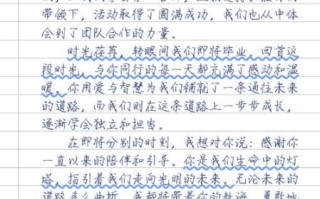 带领下，活动取得了圆满成功，我们也从中体
会到了团队合作的力量。
时光荏苒，转眼间我们即将毕业。回首这
段时光，与你同行的每一天都充满了感动和温
暖。你用爱与智慧为我们铺就了一条通往未来
的道路，而我们则在这条道路上一步步成长，
逐渐学会独立和担当。
在即将分别的时刻，我想对你说：感谢你
一直以来的陪伴和引导。你是我们生命中的灯
塔，指引着我们走向光明的未来。无论未来的